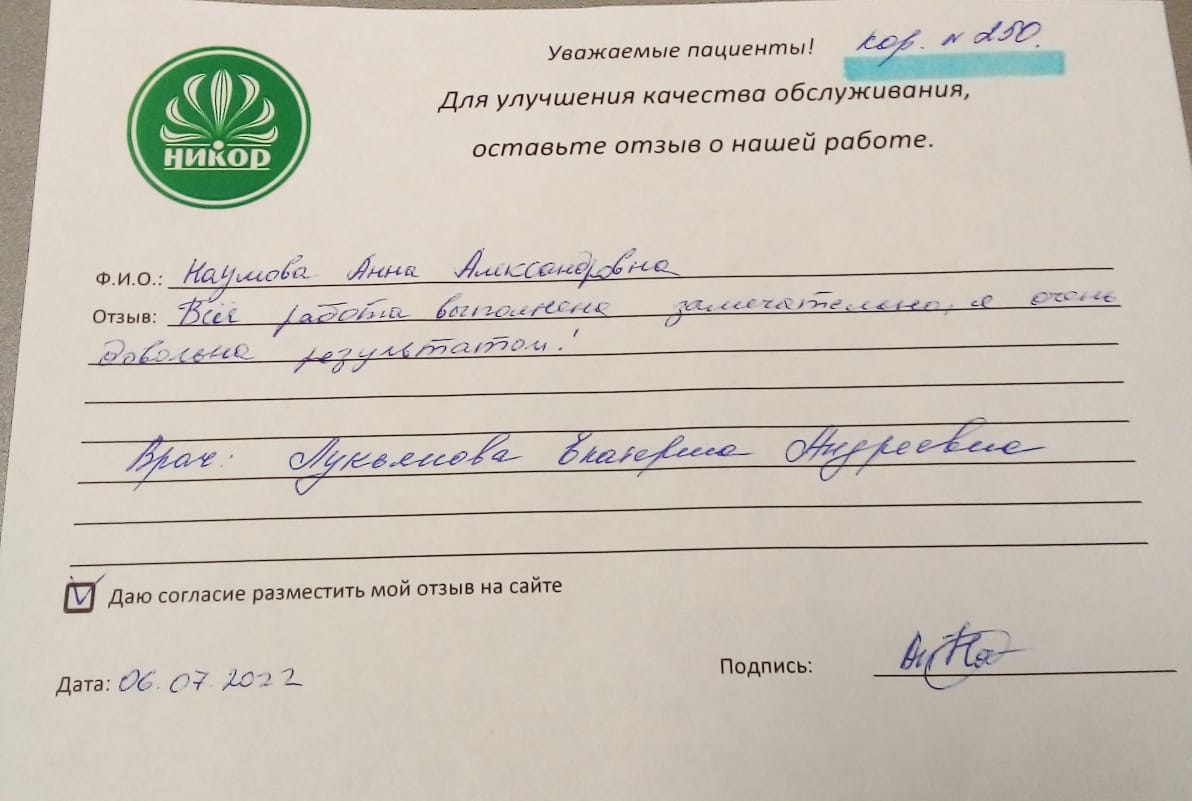 Уважаемые пациенты!
кор. № 250.
Для улучшения качества обслуживания,
оставьте отзыв о нашей работе.
НИКОР
Ф.И.О.: Наумова Анна Александровна
Отзыв: Вся работа выполнена замечательно, я очень
довольна результатом!
Врач: Лукьянова Екатерина Андреевна
Даю согласие разместить мой отзыв на сайте
Дата: 06.07.2022
Подпись: